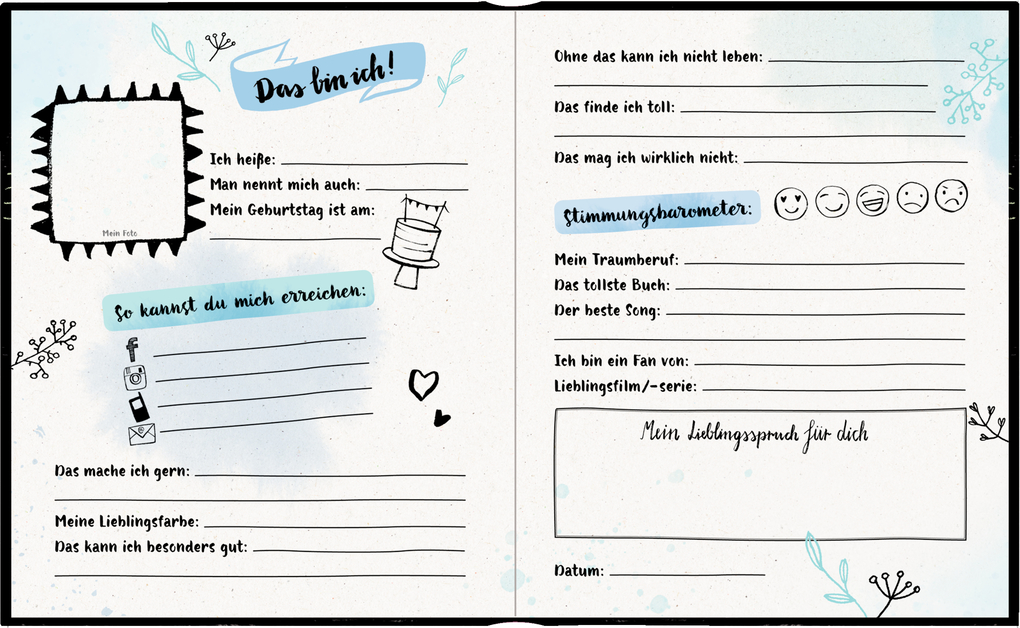 Das bin ich!
Mein Foto
Ich heiße:
Man nennt mich auch:
Mein Geburtstag ist am:
So kannst du mich erreichen:
f
Das mache ich gern:
Meine Lieblingsfarbe:
Das kann ich besonders gut:
Ohne das kann ich nicht leben:
Das finde ich toll:
Das mag ich wirklich nicht:
Stimmungsbarometer:
Mein Traumberuf:
Das tollste Buch:
Der beste Song:
Ich bin ein Fan von:
Lieblingsfilm/-serie:
Mein Lieblingsspruch für dich
Datum: